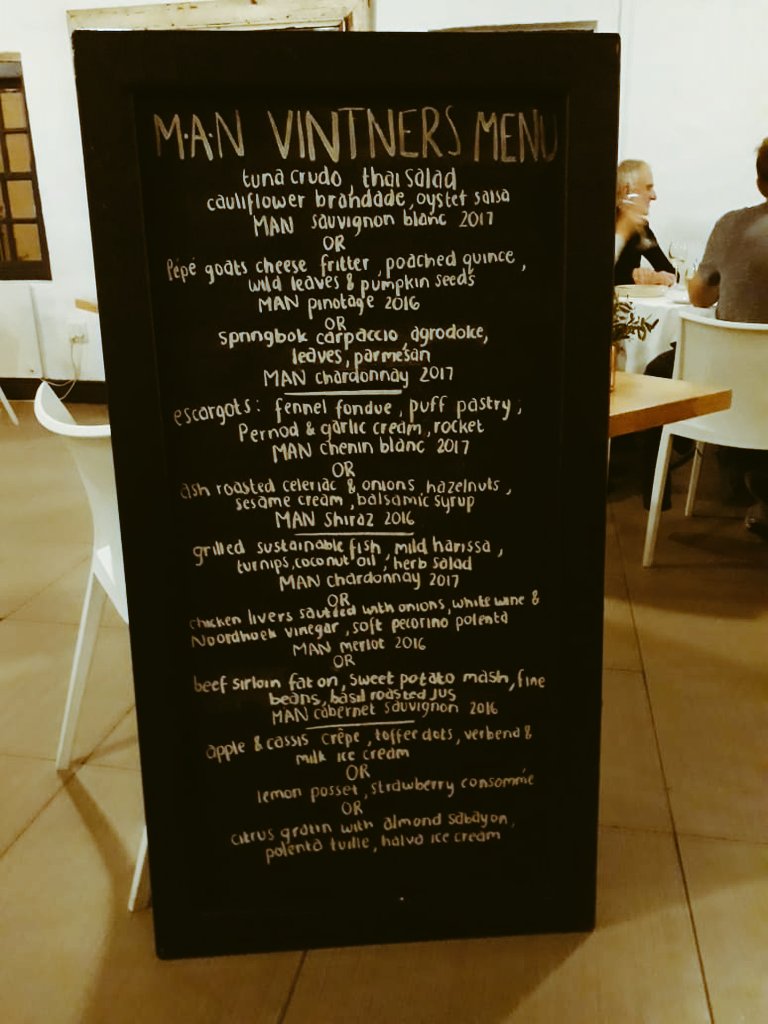 M.A.N VINTNERS MENU
tuna crudo, thai salad
cauliflower brandade, oyster salsa
MAN sauvignon blanc 2017
OR
Pépé goats cheese fritter, poached quince,
wild leaves & pumpkin seeds
MAN pinotage 2016
OR
springbok carpaccio, agrodolce,
leaves, parmesan
MAN chardonnay 2017
escargots: fennel fondue, puff pastry,
Pernod & garlic cream, rocket
MAN chenin blanc 2017
OR
ash roasted celeriac & onions, hazelnuts,
sesame cream, balsamic syrup
MAN Shiraz 2016
grilled sustainable fish, mild harissa,
turnips, coconut oil, herb salad
MAN chardonnay 2017
OR
chicken livers sautéed with onions, white wine &
Noordhoek vinegar, soft pecorino polenta
MAN merlot 2016
OR
beef sirloin fat on, sweet potato mash, fine
beans, basil roasted jus
MAN cabernet sauvignon 2016
apple & cassis crêpe, toffee dots, verbena &
milk ice cream
OR
lemon posset, strawberry consommé
OR
citrus gratin with almond sabayon,
polenta tuille, halva ice cream